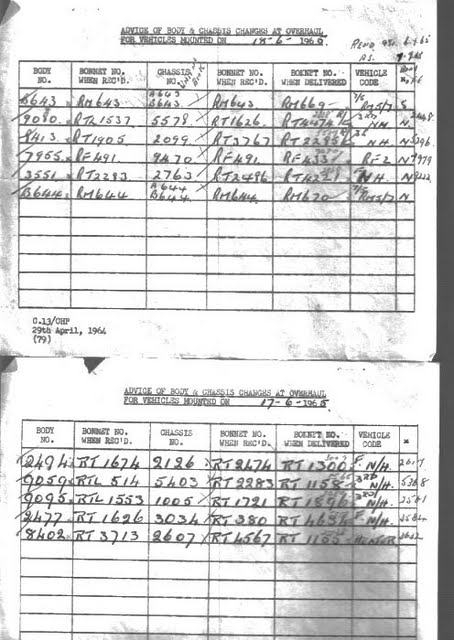 ADVICE OF BODY & CHASSIS CHANGES AT OVERHAUL
FOR VEHICLES MOUNTED ON 18-6-1965
BODY NO. BONNET NO. WHEN REC'D. CHASSIS NO. BONNET NO. WHEN REC'D. BONNET NO. WHEN DELIVERED VEHICLE CODE
B643 RM643 A643 B643 RM643 RM669 7/5 RM5/7 S
9080 RTL1537 5578 RT1626 NH N
8413 RT1905 2099 RT3767 NH N
7955 RF491 9470 RF491 RF433 RF2 N
3551 RT2283 2763 RT2486 RT4221 NH N
B644 RM644 A644 B644 RM644 RM670 7/5 RM5/7 N
C.13/CHP
29th April, 1964
(79)
ADVICE OF BODY & CHASSIS CHANGES AT OVERHAUL
FOR VEHICLES MOUNTED ON 17-6-1965
BODY NO. BONNET NO. WHEN REC'D. CHASSIS NO. BONNET NO. WHEN REC'D. BONNET NO. WHEN DELIVERED VEHICLE CODE
2494 RT1674 2126 RT2474 RT1300 N/H. 2617
9059 RTL514 5403 RT2283 RT1158 N/H. 5368
9095 RTL1553 1005 RT1721 N/H.
2477 RT1626 3034 RT380 RT4634 N/H.
8402 RT3713 2607 RT4567 RT1155